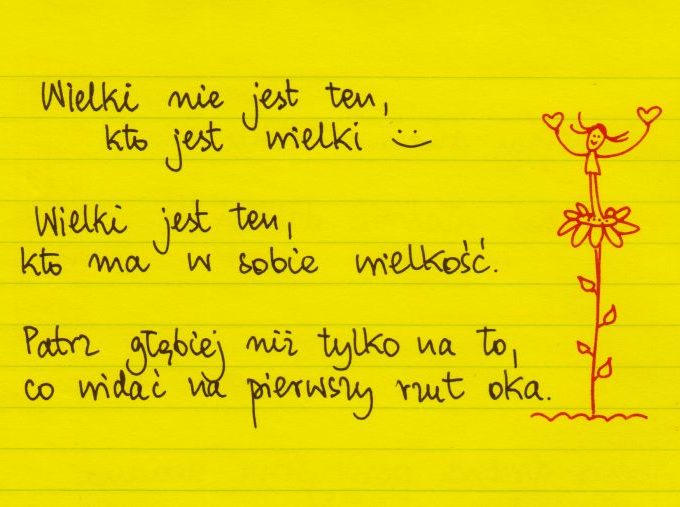 Wielki nie jest ten,
kto jest wielki :)
Wielki jest ten,
kto ma w sobie wielkość.
Patrz głębiej niż tylko na to,
co widać na pierwszy rzut oka.